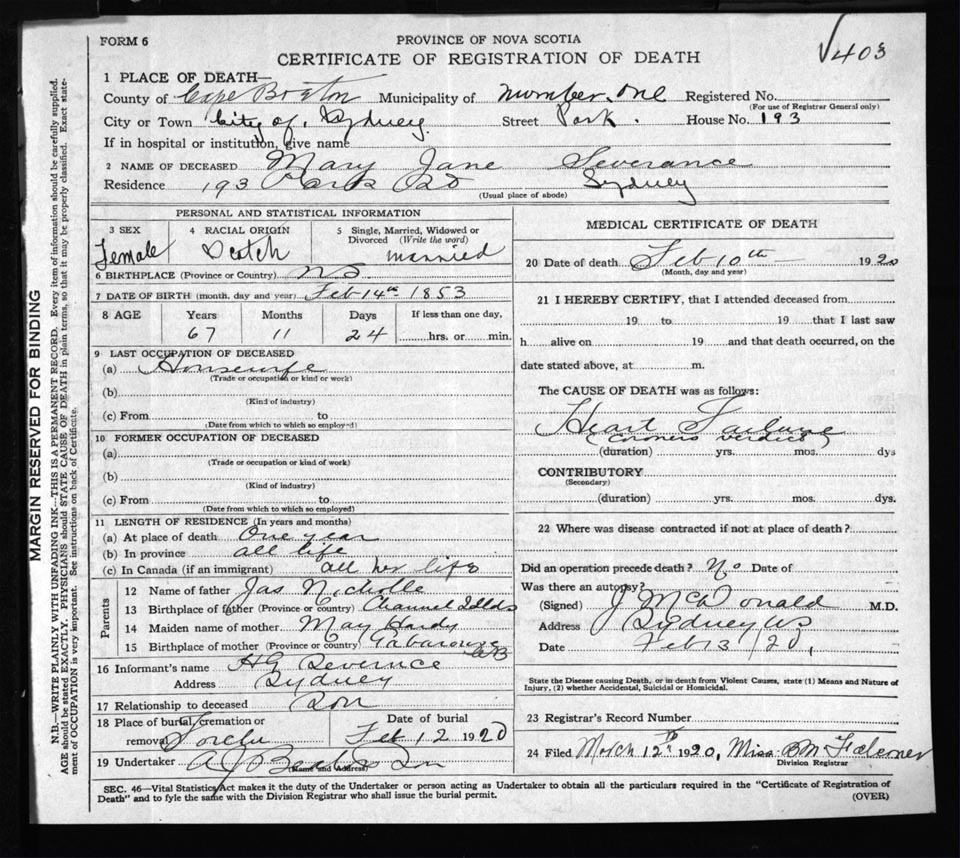 FORM 6
PROVINCE OF NOVA SCOTIA
403
CERTIFICATE OF REGISTRATION OF DEATH
1 PLACE OF DEATH—
County of Cape Breton Municipality of Number One Registered No.
(For use of Registrar General only)
City or Town City of Sydney Street Park. House No. 193
If in hospital or institution, give name
2 NAME OF DECEASED Mary Jane Severance
Residence 193 Park Sydney
(Usual place of abode)
PERSONAL AND STATISTICAL INFORMATION
3 SEX 4 RACIAL ORIGIN 5 Single, Married, Widowed or Divorced (Write the word)
Female Scotch married
6 BIRTHPLACE (Province or Country) N S
7 DATE OF BIRTH (month, day and year) Feb 14th 1853
8 AGE Years Months Days If less than one day,
67 11 24 hrs. or min.
9 LAST OCCUPATION OF DECEASED
(a) Housewife
(Trade or occupation or kind or work)
(b)
(Kind of industry)
(c) From to
(Date from which to which so employed)
10 FORMER OCCUPATION OF DECEASED
(a)
(Trade or occupation or kind of work)
(b)
(Kind of industry)
(c) From to
(Date from which to which so employed)
11 LENGTH OF RESIDENCE (In years and months)
(a) At place of death One year
(b) In province all life
(c) In Canada (if an immigrant) all her life
Parents
12 Name of father Jas Nicholle
13 Birthplace of father (Province or country) Channel Islds
14 Maiden name of mother May Hardy
15 Birthplace of mother (Province or country) Gabarouse CB
16 Informant's name HG Severnce
Address Sydney
17 Relationship to deceased Son
18 Place of burial, cremation or removal Date of burial
Feb 12 1920
19 Undertaker Son
(Name and Address)
MEDICAL CERTIFICATE OF DEATH
20 Date of death Feb 10th 1920
(Month, day and year)
21 I HEREBY CERTIFY, that I attended deceased from
19 to 19 that I last saw
h alive on 19 and that death occurred, on the
date stated above, at m.
The CAUSE OF DEATH was as follows:
Heart Failure
(Coroners verdict
(duration) yrs. mos. dys
CONTRIBUTORY
(Secondary)
(duration) yrs. mos. dys.
22 Where was disease contracted if not at place of death?
Did an operation precede death? No Date of
Was there an autopsy?
(Signed) J McDonald M.D.
Address Sydney NS
Date Feb 13/20,
State the Disease causing Death, or in death from Violent Causes, state (1) Means and Nature of
Injury, (2) whether Accidental, Suicidal or Homicidal.
23 Registrar's Record Number
24 Filed March 12th 1920, Miss B M Falconer
Division Registrar
SEC. 46—Vital Statistics Act makes it duty of the Undertaker or person acting as Undertaker to obtain all the particulars required in the "Certificate of Registration of
Death" and to fyle the same with the Division Registrar who shall issue the burial permit.
(OVER)
MARGIN RESERVED FOR BINDING
N.B.—WRITE PLAINLY WITH UNFADING INK—THIS IS A PERMANENT RECORD. Every item of information should be carefully supplied.
AGE should be stated EXACTLY. PHYSICIANS should STATE CAUSE OF DEATH in plain terms, so that it may be properly classified. Exact state-
ment of OCCUPATION is very important. See instructions on back of Certificate.